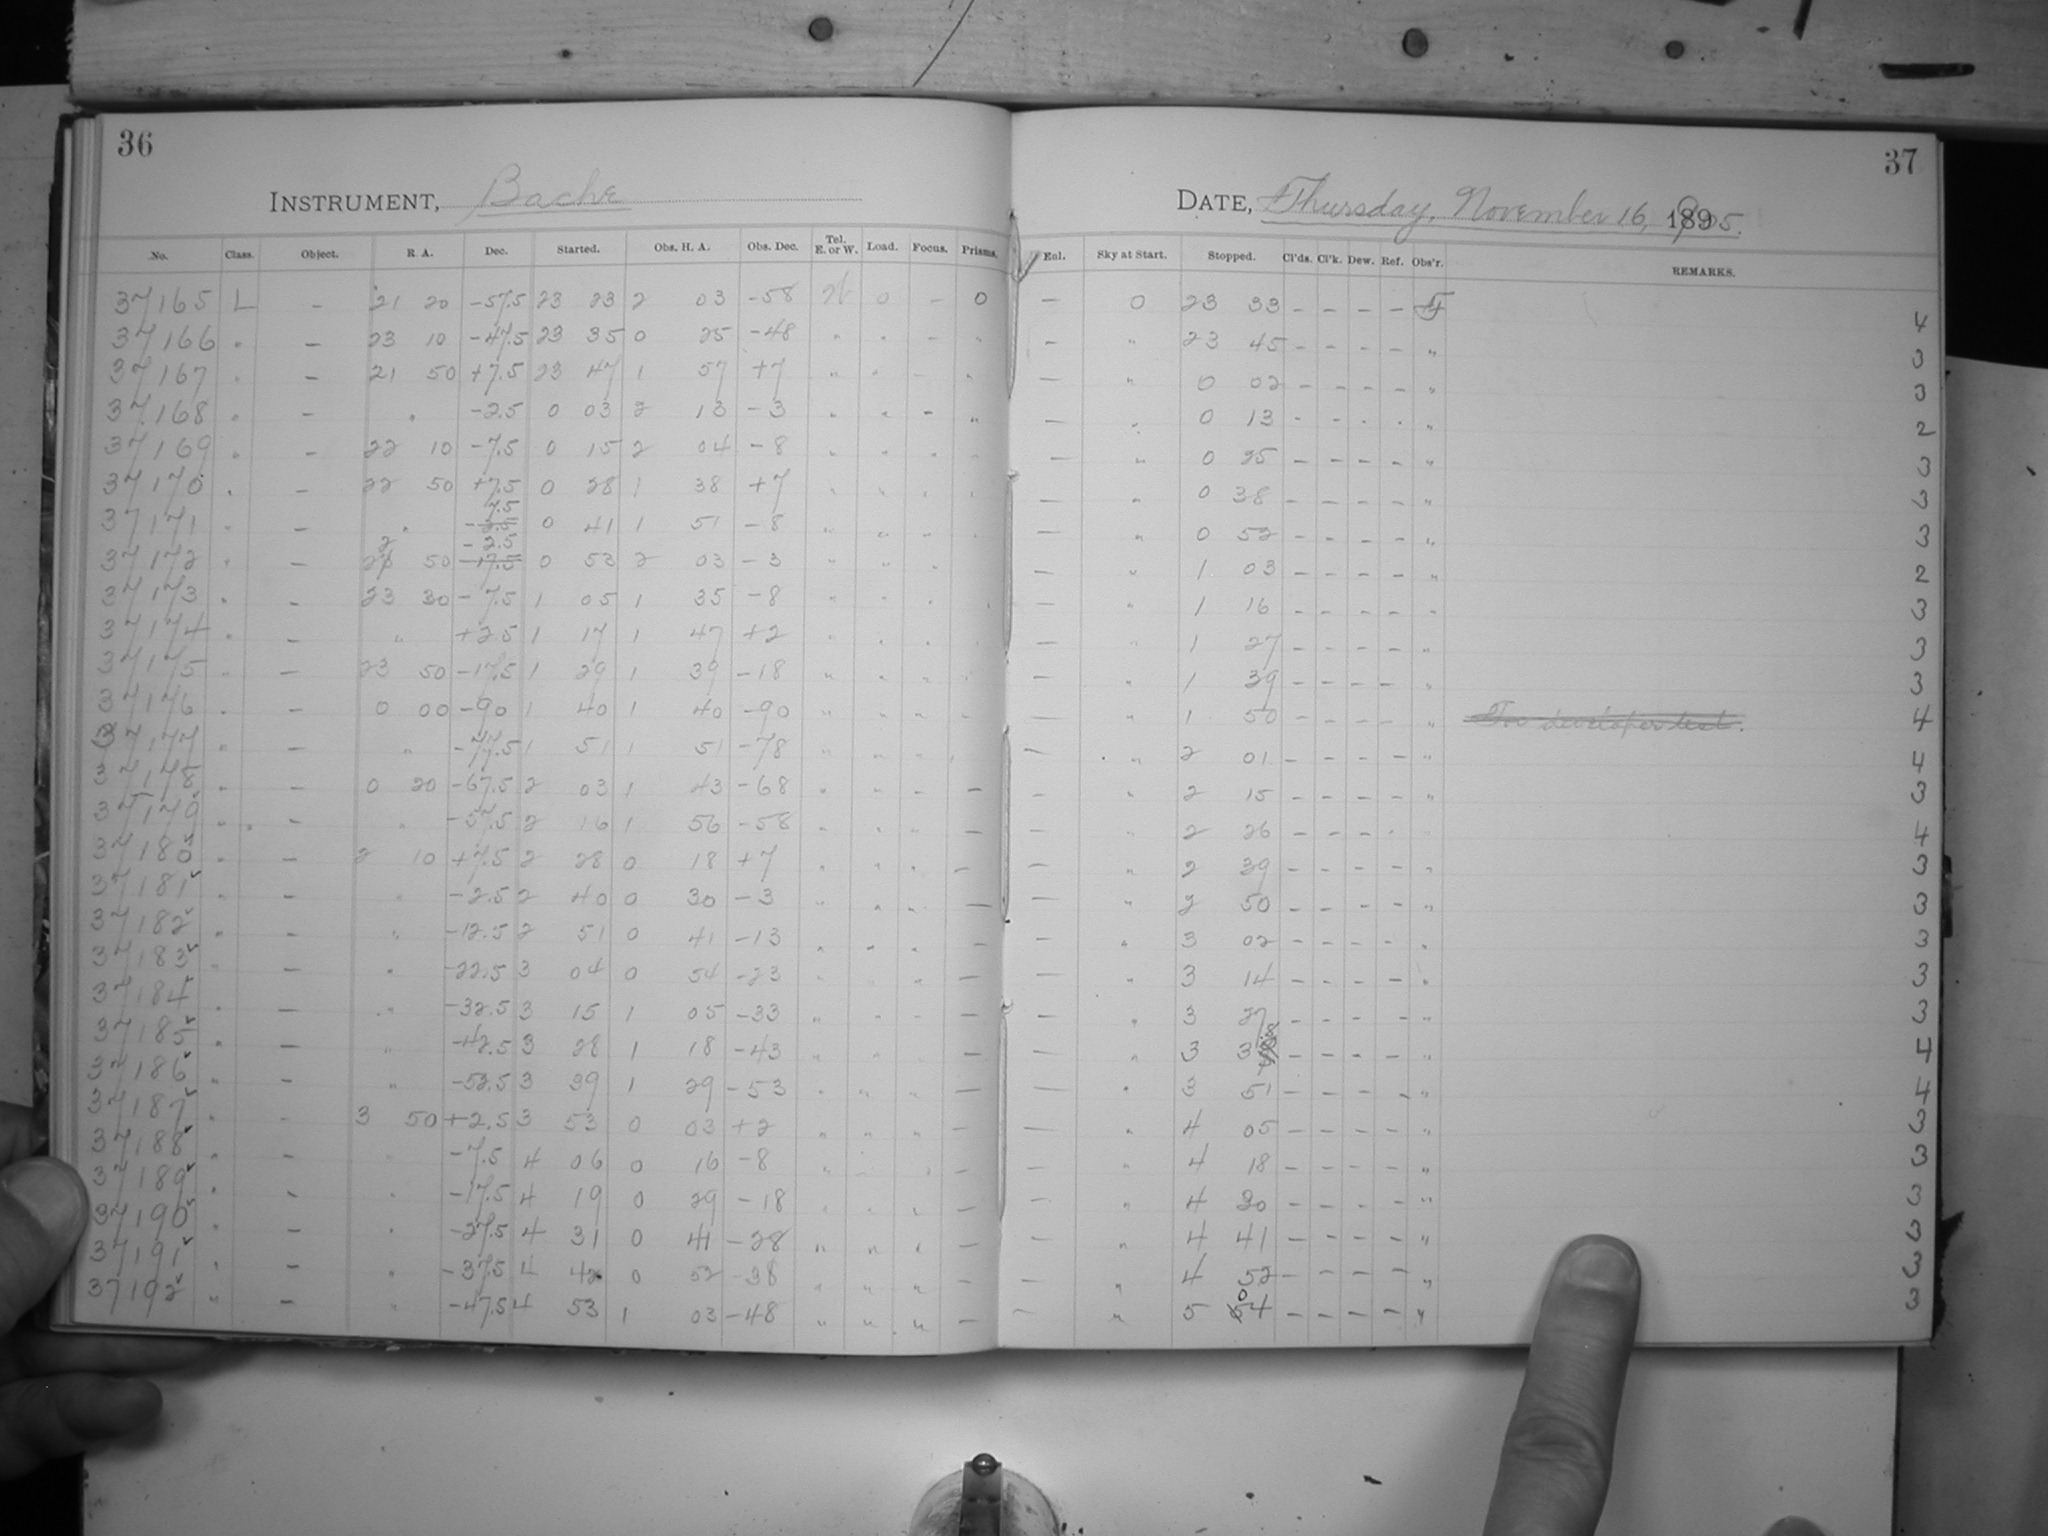 36
37
INSTRUMENT, Bache
DATE, Thursday, November 16, 1905.
No. Class. Object. R. A. Dec. Started. Obs. H. A. Obs. Dec. Tel. E. or W. Load. Focus. Prisms. Eal. Sky at Start. Stopped. Cl'ds. Cl'k. Dew. Ref. Obs'r. REMARKS.
37165 L - 21 20 -57.5 23 23 2 03 -58 W 0 - 0 - 0 23 33 - - - - 4
37166 " - 23 10 -47.5 23 35 0 25 -48 " " - " - " 23 45 - - - - " 3
37167 " - 21 50 +7.5 23 47 1 57 +7 " " - " - " 0 02 - - - - " 3
37168 " - " -2.5 0 03 2 13 -3 " " - " - " 0 13 - - - - " 2
37169 " - 22 10 -7.5 0 15 2 04 -8 " " " " - " 0 25 - - - - " 3
37170 " - 22 50 +7.5 0 28 1 38 +7 " " " " - " 0 38 - - - - " 3
37171 " - " -7.5 0 41 1 51 -8 " " " " - " 0 52 - - - - " 3
37172 " - 22 50 -2.5 0 53 2 03 -3 " " " - " 1 03 - - - - " 2
37173 " - 23 30 -7.5 1 05 1 35 -8 " " " " - " 1 16 - - - - " 3
37174 " - " +2.5 1 17 1 47 +2 " " " " - " 1 27 - - - - " 3
37175 " - 23 50 -17.5 1 29 1 39 -18 " " " " - " 1 39 - - - - " 3
37176 " - 0 00 -90 1 40 1 40 -90 " " " " - " 1 50 - - - - " For developer test. 4
37177 " - " -77.5 1 51 1 51 -78 " " " " - " 2 01 - - - - " 4
37178 " - 0 20 -67.5 2 03 1 43 -68 " " " - - " 2 15 - - - - " 3
37179 " - " -57.5 2 16 1 56 -58 " " " - - " 2 26 - - - - " 4
37180 " - 2 10 +7.5 2 28 0 18 +7 " " " - - " 2 39 - - - - " 3
37181 " - " -2.5 2 40 0 30 -3 " " " - - " 2 50 - - - - " 3
37182 " - " -12.5 2 51 0 41 -13 " " " - - " 3 02 - - - - " 3
37183 " - " -22.5 3 04 0 54 -23 " " " - - " 3 14 - - - - " 3
37184 " - " -32.5 3 15 1 05 -33 " " " - - " 3 27 - - - - " 3
37185 " - " -42.5 3 28 1 18 -43 " " " - - " 3 - - - - " 4
37186 " - " -52.5 3 39 1 29 -53 " " " - - " 3 51 - - - - " 4
37187 " - 3 50 +2.5 3 53 0 03 +2 " " " - - " 4 05 - - - - " 3
37188 " - " -7.5 4 06 0 16 -8 " " " - - " 4 18 - - - - " 3
37189 " - " -17.5 4 19 0 29 -18 " " " - - " 4 30 - - - - " 3
37190 " - " -27.5 4 31 0 41 -28 " " " - - " 4 41 - - - - " 3
37191 " - " -37.5 4 42 0 52 -38 " " " - - " 4 52 - - - - " 3
37192 " - " -47.5 4 53 1 03 -48 " " " - - " 5 04 - - - - " 3